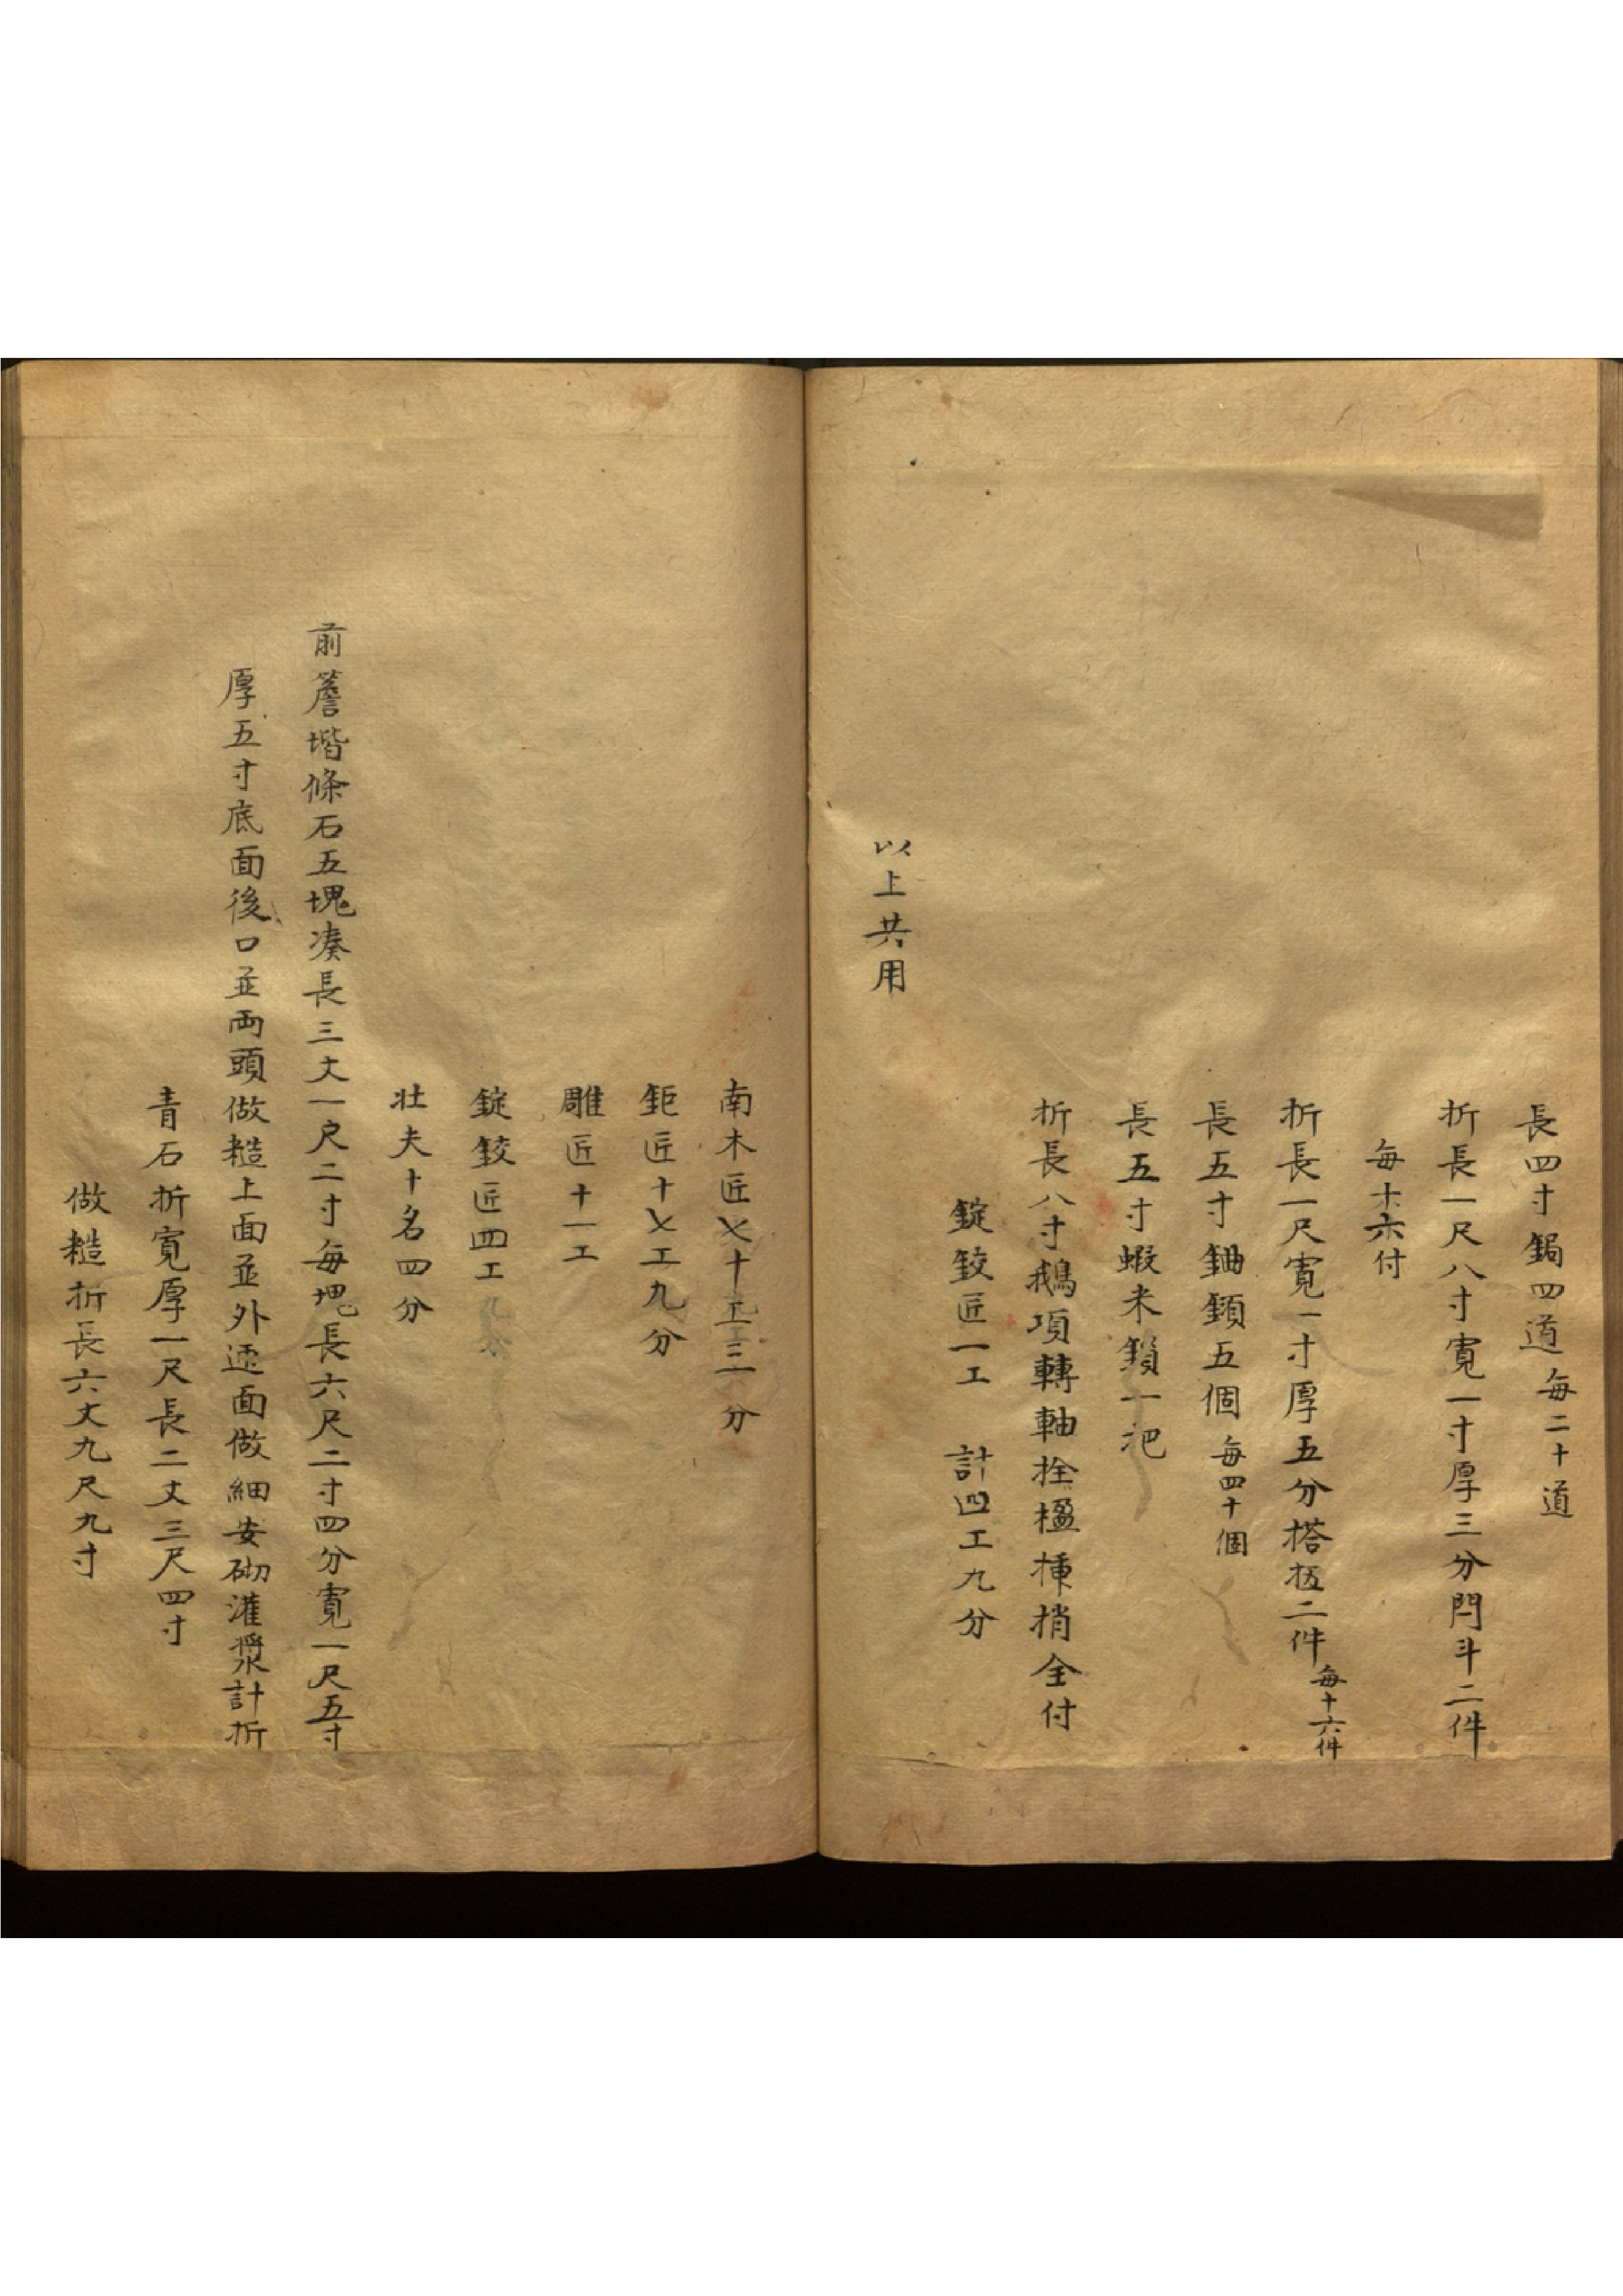 長四寸鋦四道每二十道
折長一尺八寸寬一寸厚三分閂斗二件
每十六付
折長一尺寬一寸厚五分搭㧍二件每十六件
長五寸鈾鎖五個每四十個
長五寸蝦米鎖一把
折長八寸鵝項轉軸拴楹捶梢全付
錠鉸匠一工 計四工九分
以上共用
南木匠乂十五工三分
鉅匠十乂工九分
雕匠十一工
錠鉸匠四工九分
壯夫十名四分
前簷堦條石五塊凑長三丈一尺二寸每塊長六尺二寸四分寬一尺五寸
厚五寸底面後口並両頭做糙上面並外面做細安砌灌漿計折
青石折寬厚一尺長二丈三尺四寸
做糙折長六丈九尺九寸